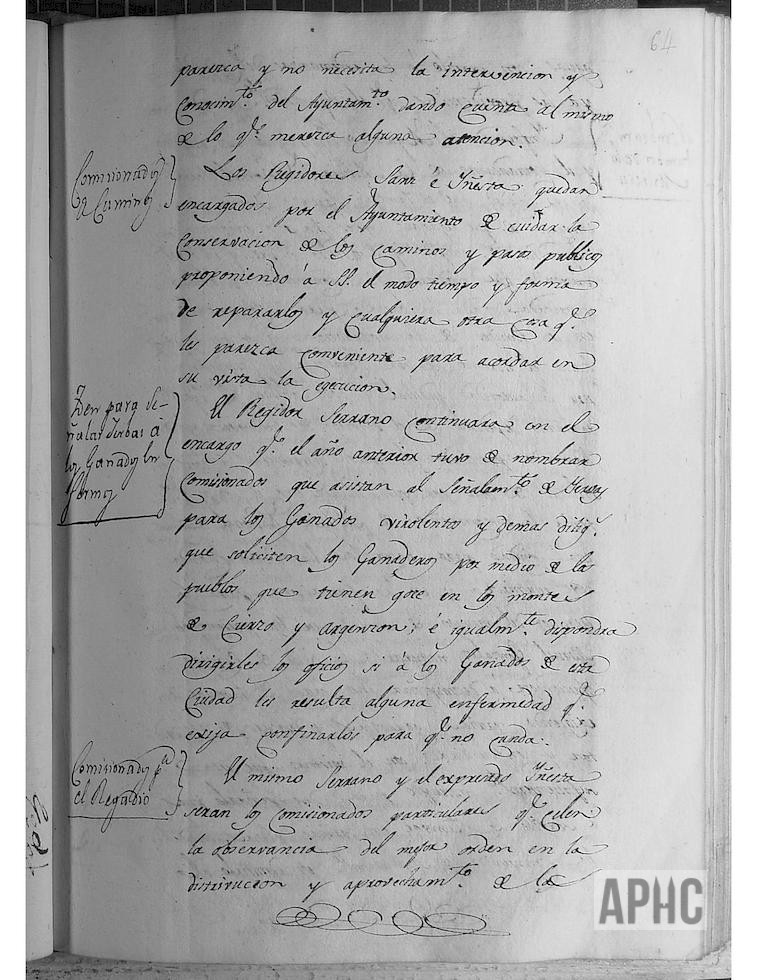 64
parezca y no necesita la intervencion y
Conocim.to del Ayuntam.to dando cuenta al mismo
de lo q.e merezca alguna atencion.
Comisionados
a Caminos
Los Regidores Sanz é Yñesta quedan
encargados por el Ayuntamiento de cuidar la
Conservacion de los caminos y pasos publicos
proponiendo á SS. el modo tiempo y forma
de repararlos y cualquiera otra cosa q.e
les parezca combeniente para acordar en
su vista la egecucion.
Yden para Se-
ñalar Yerbas á
los Ganados En
fermos
El Regidor Serrano continuara con el
encargo q.e el año anterior tuvo de nombrar
Comisionados que asistan al Señalam.to de Yervas
para los Ganados virolentos y demas dilig.s
que soliciten los Ganaderos por medio de los
pueblos que tienen goce en los montes
de Cierzo y Argenzon; é igualm.te dispondra
dirigirles los oficios si á los Ganados de esta
Ciudad les resulta alguna enfermedad q.e
exija confinarlos para q.e no cunda.
Comisionados p.a
el Regadio
El mismo Serrano y el expresado Yñesta
seran los Comisionados particulares q.e celen
la observancia del mejor orden en la
distribucion y aprovecham.to de las
APHC